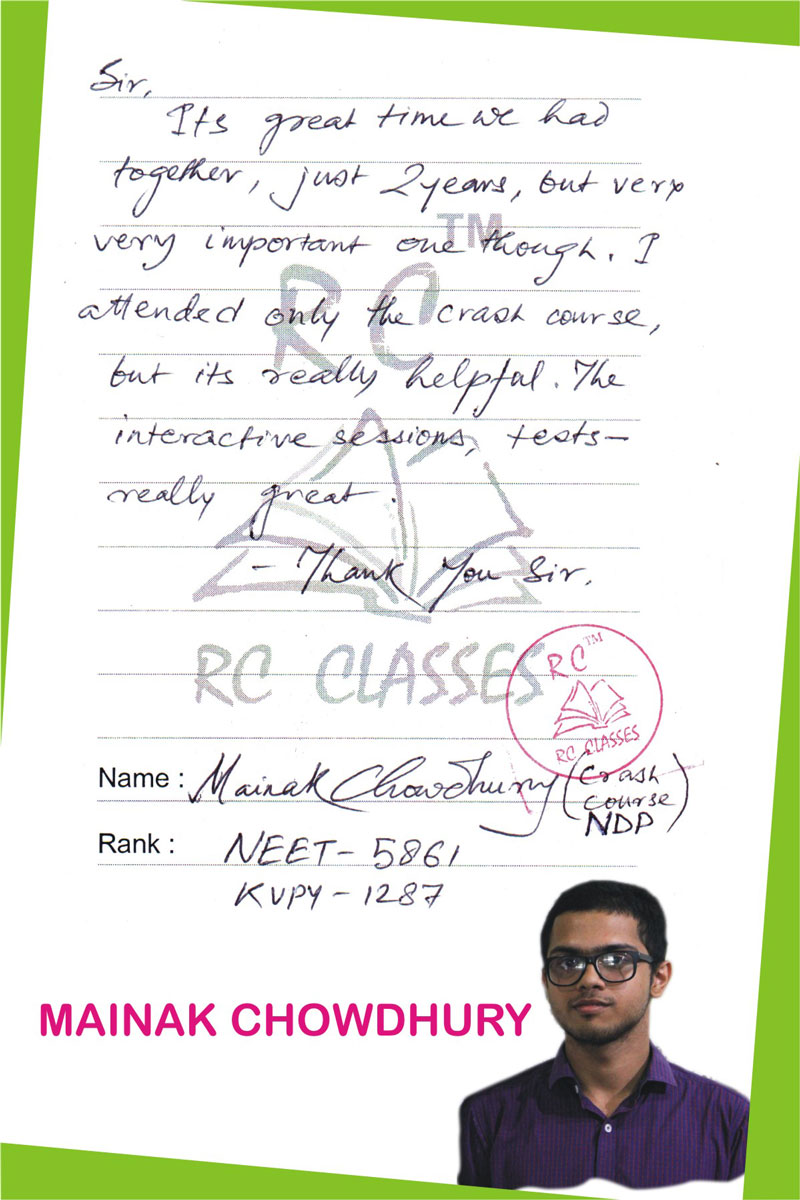 Sir,
Its great time we had
together, just 2 years, but very
very important one though. I
attended only the crash course,
but its really helpful. The
interactive sessions, tests—
really great.
- Thank You Sir.
TM
RC
RC CLASSES
RC TM
RC CLASSES
Name : Mainak Chowdhury (Crash
course
NDP)
Rank : NEET - 5861
KVPY - 1287
MAINAK CHOWDHURY